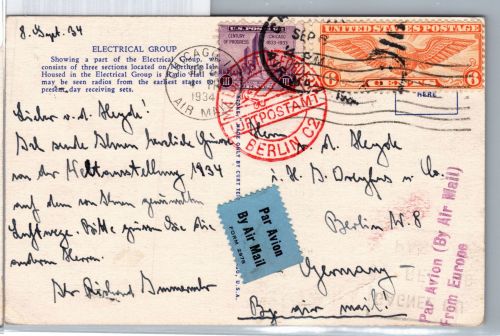 8. Sept. 34
ELECTRICAL GROUP
Showing a part of the Electrical Group,
consists of three sections located on Northerly Isl
Housed in the Electrical Group is Radio Hall
may be seen radios from the earliest stages to
present-day receiving sets.
UNITED STATES POSTAGE
CENTURY OF PROGRESS
CHICAGO
1833-1933
3
UNITED STATES POSTAGE
6 CENTS 6
CHICAGO
1934
AIR MAIL
SEP 8
HERE
LUFTPOSTAMT
BERLIN C2
Lieber v. d. Heyde!
Ich sende Ihnen herzliche Grüsse
von der Weltausstellung 1934
auf dem von Ihnen
Luftwege. Bitte grüßen Sie die
anderen Herren.
Ihr Richard
Herrn
v. d. Heyde
i. H. S. Dreyfus u. Co.
Berlin W. 8
Germany
By air mail!
Par Avion
By Air Mail
FORM 2978
Par Avion (By Air Mail)
From Europe